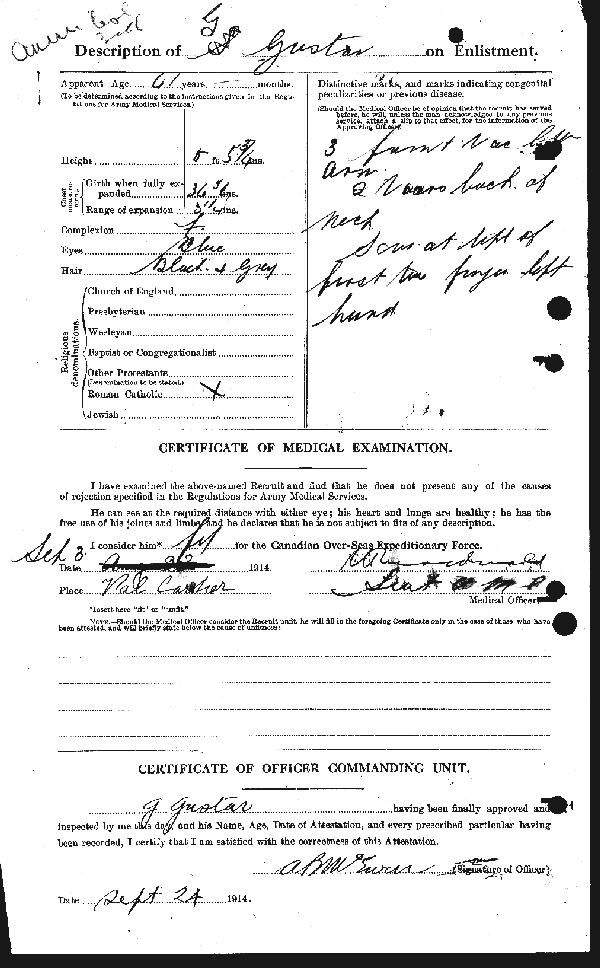 Ammn Col
Description of G Gustar on Enlistment.
Apparent Age 61 years — months.
(To be determined according to the instructions given in the Regulations for Army Medical Services.)
Height 5 ft. 5¾ ins.
Chest measurement
Girth when fully expanded 36½ ins.
Range of expansion 3½ ins.
Complexion f
Eyes Blue
Hair Black & Grey
Religious denominations
Church of England
Presbyterian
Wesleyan
Baptist or Congregationalist
Other Protestants
(Denomination to be stated.)
Roman Catholic X
Jewish
Distinctive marks, and marks indicating congenital
peculiarities or previous disease.
(Should the Medical Officer be of opinion that the recruit has served
before, he will, unless the man acknowledges to any previous
service, attach a slip to that effect, for the information of the
Approving Officer).
3 faint Vac left
Arm
2 back of
neck
Scar at left of
first finger left
hand
CERTIFICATE OF MEDICAL EXAMINATION.
I have examined the above-named Recruit and find that he does not present any of the causes
of rejection specified in the Regulations for Army Medical Services.
He can see at the required distance with either eye; his heart and lungs are healthy; he has the
free use of his joints and limbs, and he declares that he is not subject to fits of any description.
I consider him* fit for the Canadian Over-Seas Expeditionary Force.
Sept 3
Date 1914.
Place Val Cartier
Medical Officer.
*Insert here "fit" or "unfit."
NOTE.—Should the Medical Officer consider the Recruit unfit, he will fill in the foregoing Certificate only in the case of those who have
been attested, and will briefly state below the cause of unfitness:
CERTIFICATE OF OFFICER COMMANDING UNIT.
G Gustar having been finally approved and
inspected by me this day, and his Name, Age, Date of Attestation, and every prescribed particular having
been recorded, I certify that I am satisfied with the correctness of this Attestation.
(Signature of Officer)
Date Sept 24 1914.